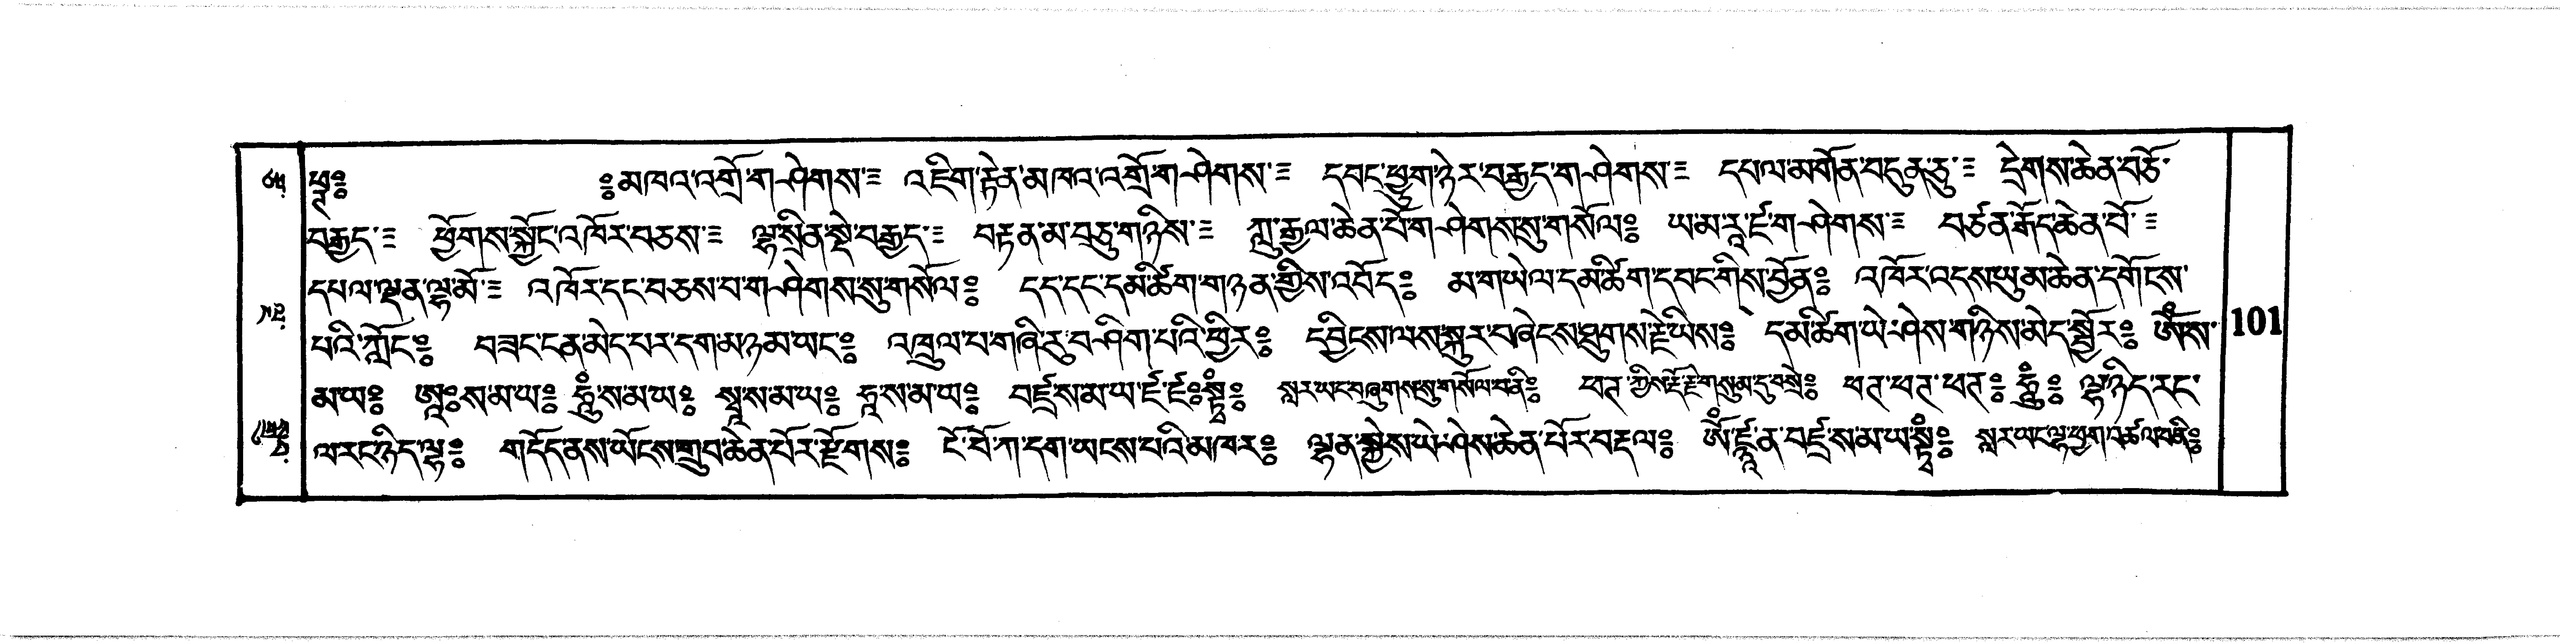 པཱུ༔ ༔མཁའ་འགྲོ་གཤེགས་༔ འཇིག་རྟེན་མཁའ་འགྲོ་གཤེགས་༔ དབང་ཕྱུག་ཉེར་བརྒྱད་གཤེགས་༔ དཔལ་མགོན་བདུན་ཅུ་༔ དྲེགས་ཆེན་བཅོ་
བརྒྱད་༔ ཕྱོགས་སྐྱོང་འཁོར་བཅས་༔ ལྷ་སྲིན་སྡེ་བརྒྱད་༔ བརྟན་མ་བཅུ་གཉིས་༔ ཀླུ་རྒྱལ་ཆེན་པོ་གཤེགས་སུ་གསོལ༔ ཡ་མ་རཱ་ཛ་གཤེགས་༔ བཙན་རྒོད་ཆེན་པོ་༔
དཔལ་ལྡན་ལྷ་མོ་༔ འཁོར་དང་བཅས་པ་གཤེགས་སུ་གསོལ༔ དད་དང་དམ་ཚིག་གཉན་གྱིས་འབོད༔ མ་གཡེལ་དམ་ཚིག་དབང་གིས་བྱོན༔ འཁོར་འདས་ཡུམ་ཆེན་དགོངས་
པའི་ཀློང་༔ བཟང་ངན་མེད་པར་དག་མཉམ་ཡང་༔ འཁྲུལ་པ་གཞི་རུ་བཤིག་པའི་ཕྱིར༔ དབྱིངས་ལས་སྐུར་བཞེངས་ཐུགས་རྗེ་ཡིས༔ དམ་ཚིག་ཡེ་ཤེས་གཉིས་མེད་སྦྱོར༔ ཨོཾ་ས་
མ་ཡ༔ ཨཱཿ་ས་མ་ཡ༔ ཧཱུྃ་ས་མ་ཡ༔ སྭཱ་ས་མ་ཡ༔ ཧཱ་ས་མ་ཡ༔ བཛྲ་ས་མ་ཡ་ཛ་ཛ༔སྟྭཾ༔ སླར་ཡང་བཞུགས་སུ་གསོལ་བ་ནི༔ ཕཊ་ཀྱིས་རྡོ་རྗེ་གསུམ་དུ་བསྲེ༔ ཕཊ་ཕཊ་ཕཊ༔ ཧཱུྃ༔ ལྷ་ཉིད་རང་
ལ་རང་ཉིད་ལྷ༔ གདོད་ནས་ཡོངས་གྲུབ་ཆེན་པོར་རྫོགས༔ ངོ་བོ་ཀ་དག་ཡངས་པའི་མཁར༔ ལྷན་སྐྱེས་ཡེ་ཤེས་ཆེན་པོར་བརྡལ༔ ཨོཾ་ཛྙཱ་ན་བཛྲ་ས་མ་ཡ་སྟྭཾ༔ སླར་ཡང་ལྷ་ཕྱག་འཚལ་བ་ནི༔
101